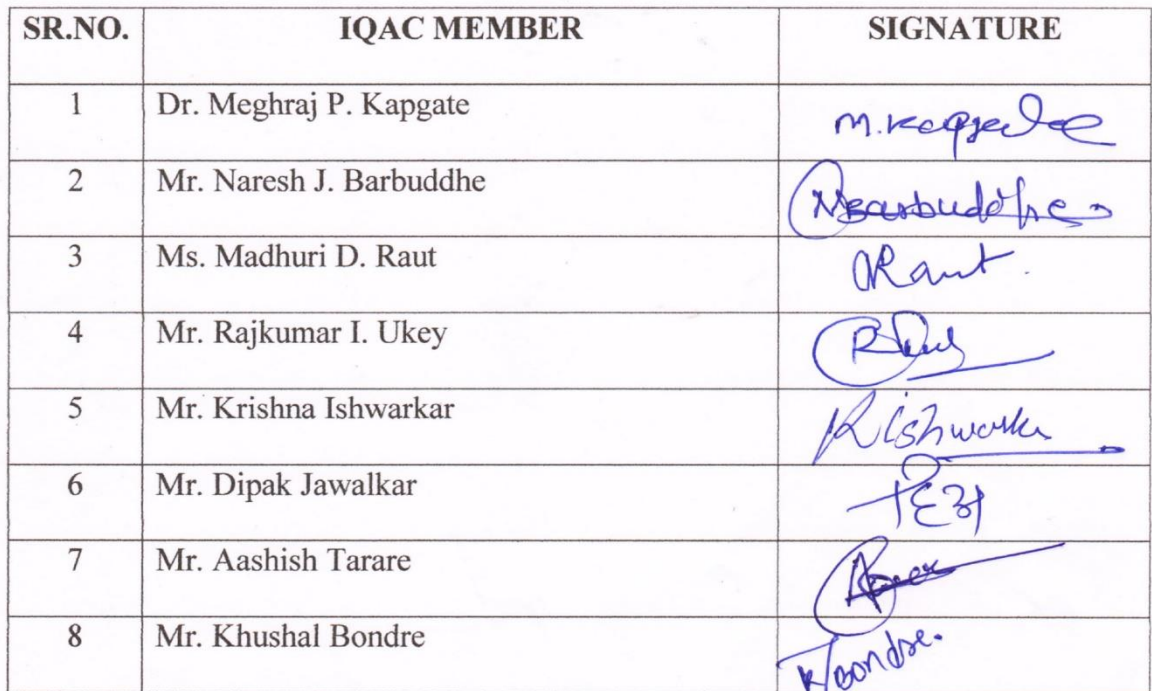 SR.NO. IQAC MEMBER SIGNATURE
1 Dr. Meghraj P. Kapgate M.Kapgate
2 Mr. Naresh J. Barbuddhe NBarbuddhe
3 Ms. Madhuri D. Raut Raut.
4 Mr. Rajkumar I. Ukey
5 Mr. Krishna Ishwarkar
6 Mr. Dipak Jawalkar
7 Mr. Aashish Tarare
8 Mr. Khushal Bondre KBondre.